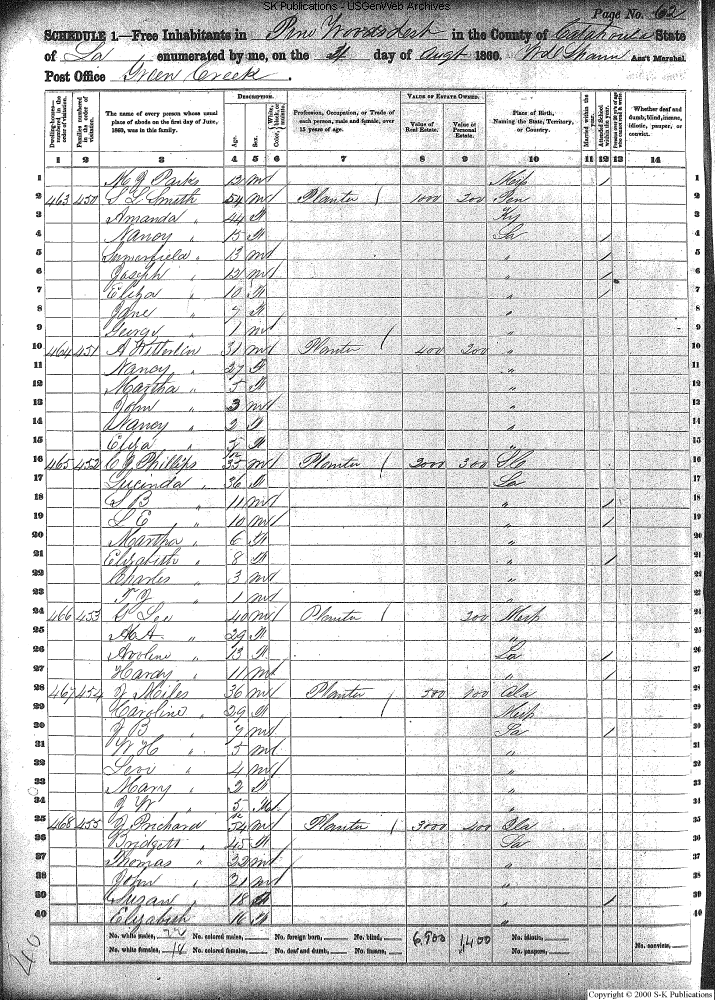 SK Publications - USGenWeb Archives
Page No. 62
SCHEDULE 1.—Free Inhabitants in Pine Woods in the County of Catahoula State
of La enumerated by me, on the 4 day of Augt 1860. Ass't Marshal.
Post Office Green Creek.
Dwelling-houses—numbered in the order of visitation.
Families numbered in the order of visitation.
The name of every person whose usual place of abode on the first day of June, 1860, was in this family.
DESCRIPTION.
Age.
Sex.
Color, White, black, or mulatto.
Profession, Occupation, or Trade of each person, male and female, over 15 years of age.
VALUE OF ESTATE OWNED.
Value of Real Estate.
Value of Personal Estate.
Place of Birth, Naming the State, Territory, or Country.
Married within the year.
Attended School within the year.
Whether deaf and dumb, blind, insane, idiotic, pauper, or convict.
1 2 3 4 5 6 7 8 9 10 11 12 13 14
1 Parks 12 m / 1
2 463 450 Smith 54 m Planter 1000 200 Pen 2
3 Amanda " 44 f Ky 3
4 Nancy " 15 f La / 4
5 Summerfield " 13 m " / 5
6 Joseph " 12 m " / 6
7 Eliza " 10 f " / 7
8 Jane " 7 f " 8
9 George " 1 m " 9
10 464 451 A 31 m Planter 400 200 " 10
11 Nancy " 27 f " 11
12 Martha " 5 f " 12
13 John " 3 m " 13
14 Nancy " 2 f " 14
15 Eliza " f " 15
16 465 452 Phillips 35 m Planter 2000 300 S C 16
17 Lucinda " 36 f La 17
18 S B " 11 m " / 18
19 S E " 10 m " / 19
20 Martha " 6 f " 20
21 Elizabeth " 8 f " / 21
22 Charles " 3 m " 22
23 " 1 m " 23
24 466 453 Lee 40 m Planter 200 Misp 24
25 A A " 29 f " 25
26 Avoline " 13 f La / 26
27 Hardy " 11 m " / 27
28 467 454 Miles 36 m Planter 500 Ala 28
29 Caroline " 29 f Misp 29
30 B " 7 m La / 30
31 W H " 5 m " 31
32 Levi " 4 m " 32
33 Mary " 2 f " 33
34 W " 34
35 468 455 Prichard 54 m Planter 3000 400 35
36 Bridgett " 45 f La 36
37 Thomas " 22 m " 37
38 John " 21 m " 38
39 Susan " 18 f " / 39
40 Elizabeth " 16 f " 40
No. white males, 22 No. colored males, No. foreign born, No. blind, 6,900 1,400 No. idiotic, No. convicts,
No. white females, 18 No. colored females, No. deaf and dumb, No. insane, No. paupers,
40
Copyright © 2000 S-K Publications